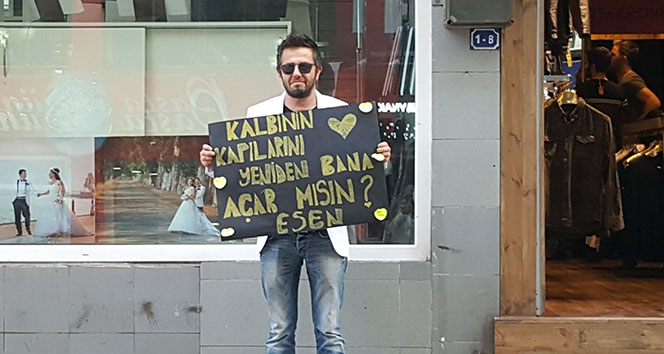 1-B
KALBİNİN
KAPILARINI
YENİDEN BANA
AÇAR MISIN?
ESEN